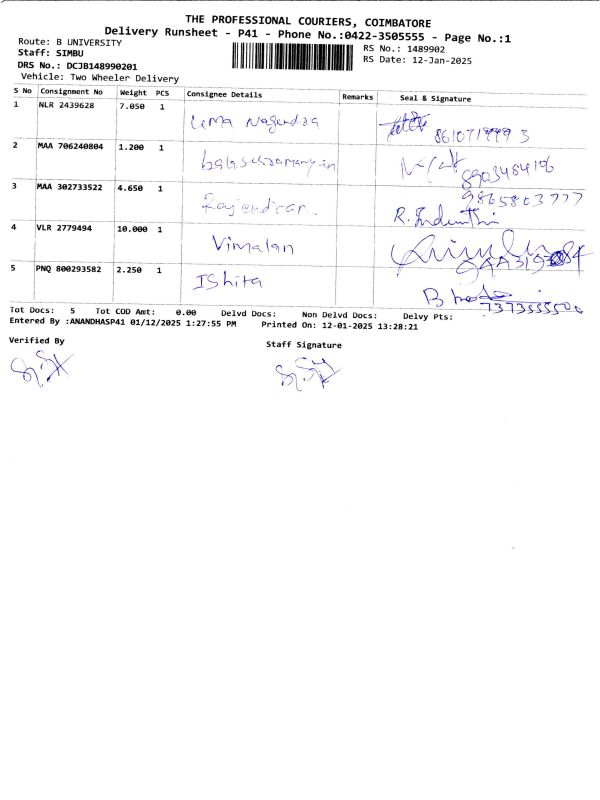 THE PROFESSIONAL COURIERS, COIMBATORE
Delivery Runsheet - P41 - Phone No.:0422-3505555 - Page No.:1
Route: B UNIVERSITY
RS No.: 1489902
Staff: SIMBU
RS Date: 12-Jan-2025
DRS No.: DCJB148990201
Vehicle: Two Wheeler Delivery
S No Consignment No Weight PCS Consignee Details Remarks Seal & Signature
1 NLR 2439628 7.050 1 Uma Nagendra
2 MAA 706240804 1.200 1 balasubramaniyan 8903484106
3 MAA 302733522 4.650 1 Rajendran. 9865803777
R.
4 VLR 2779494 10.000 1 Vimalan
5 PNQ 800293582 2.250 1 IShita
7373555500
Tot Docs: 5 Tot COD Amt: 0.00 Delvd Docs: Non Delvd Docs: Delvy Pts:
Entered By :ANANDHASP41 01/12/2025 1:27:55 PM Printed On: 12-01-2025 13:28:21
Verified By
Staff Signature